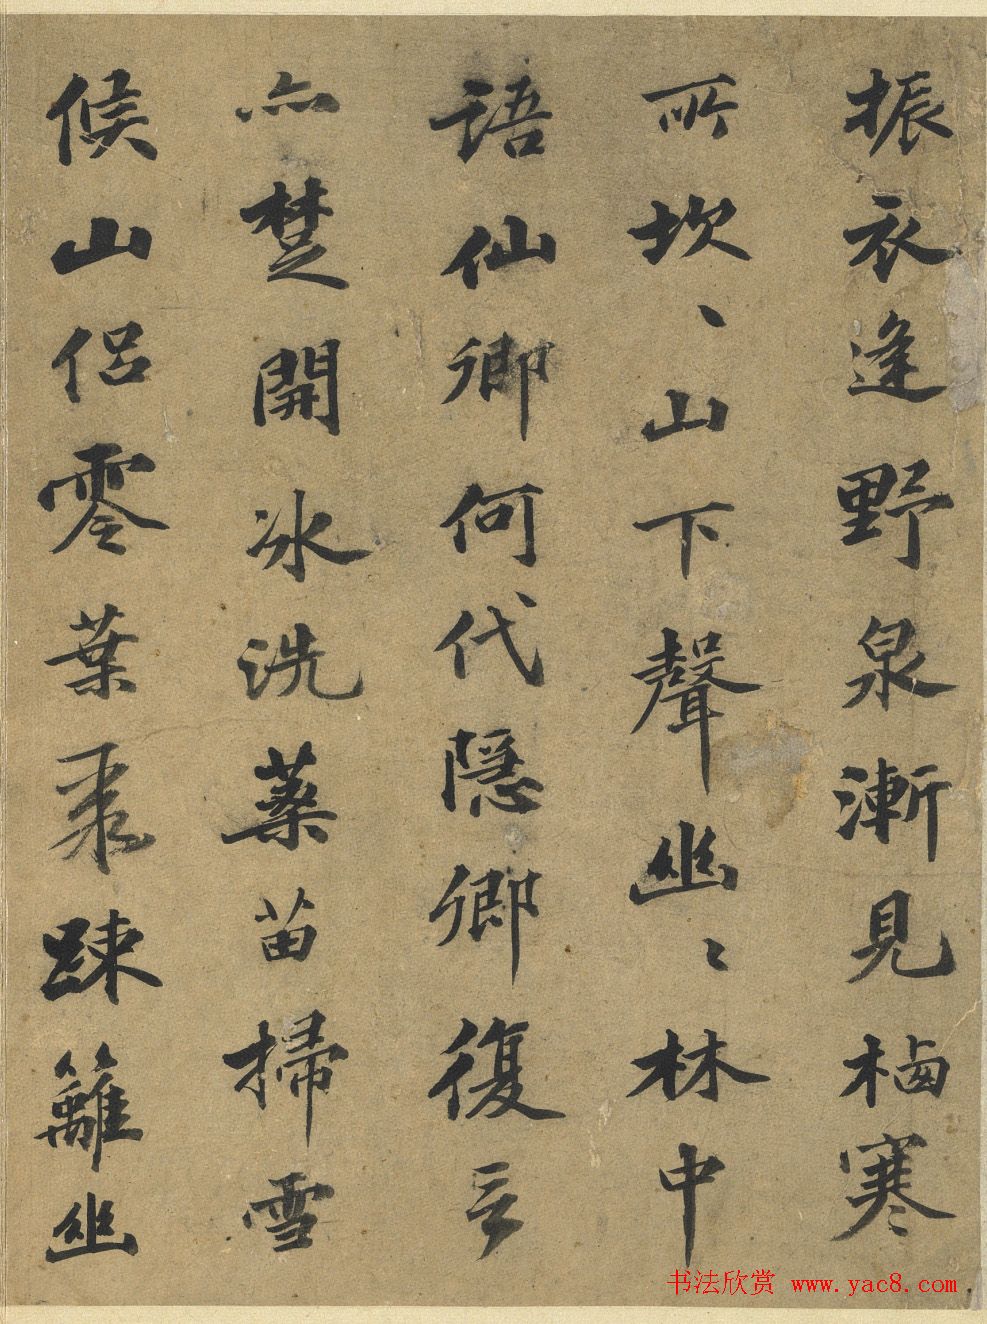 振衣逢野泉漸見栖寒
所坎、山下聲幽、林中
語仙卿何代隱卿復言
亦楚開冰洗藥苗掃雪
候山侶零葉聚踈籬幽
书法欣赏 www.yac8.com